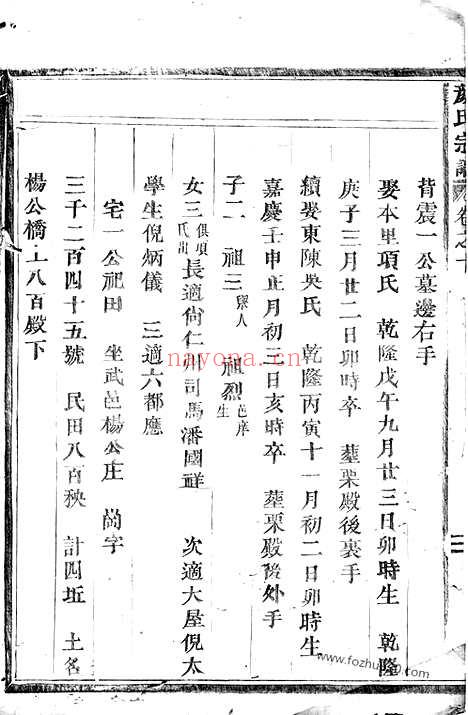 氏宗譜 卷之十
背震一公墓邊右手
娶本里項氏 乾隆戊午九月廿三日卯時生 乾隆
庚子三月廿二日卯時卒 塟栗殿後裏手
續娶東陳吳氏 乾隆丙寅十一月初二日卯時生
嘉慶壬申正月初三日亥時卒 塟栗殿後外手
子二 祖三 祖烈邑庠生
女三俱項氏出 長適尙仁州司馬潘國祥 次適大屋倪太
學生倪炳儀 三適六都應
宅一公祀田 坐武邑楊公庄 尙字
三千二百四十五號 民田八百秧 計四坵 土名
楊公橋上八百殿下
nayona.cn
www.fozhu920.com